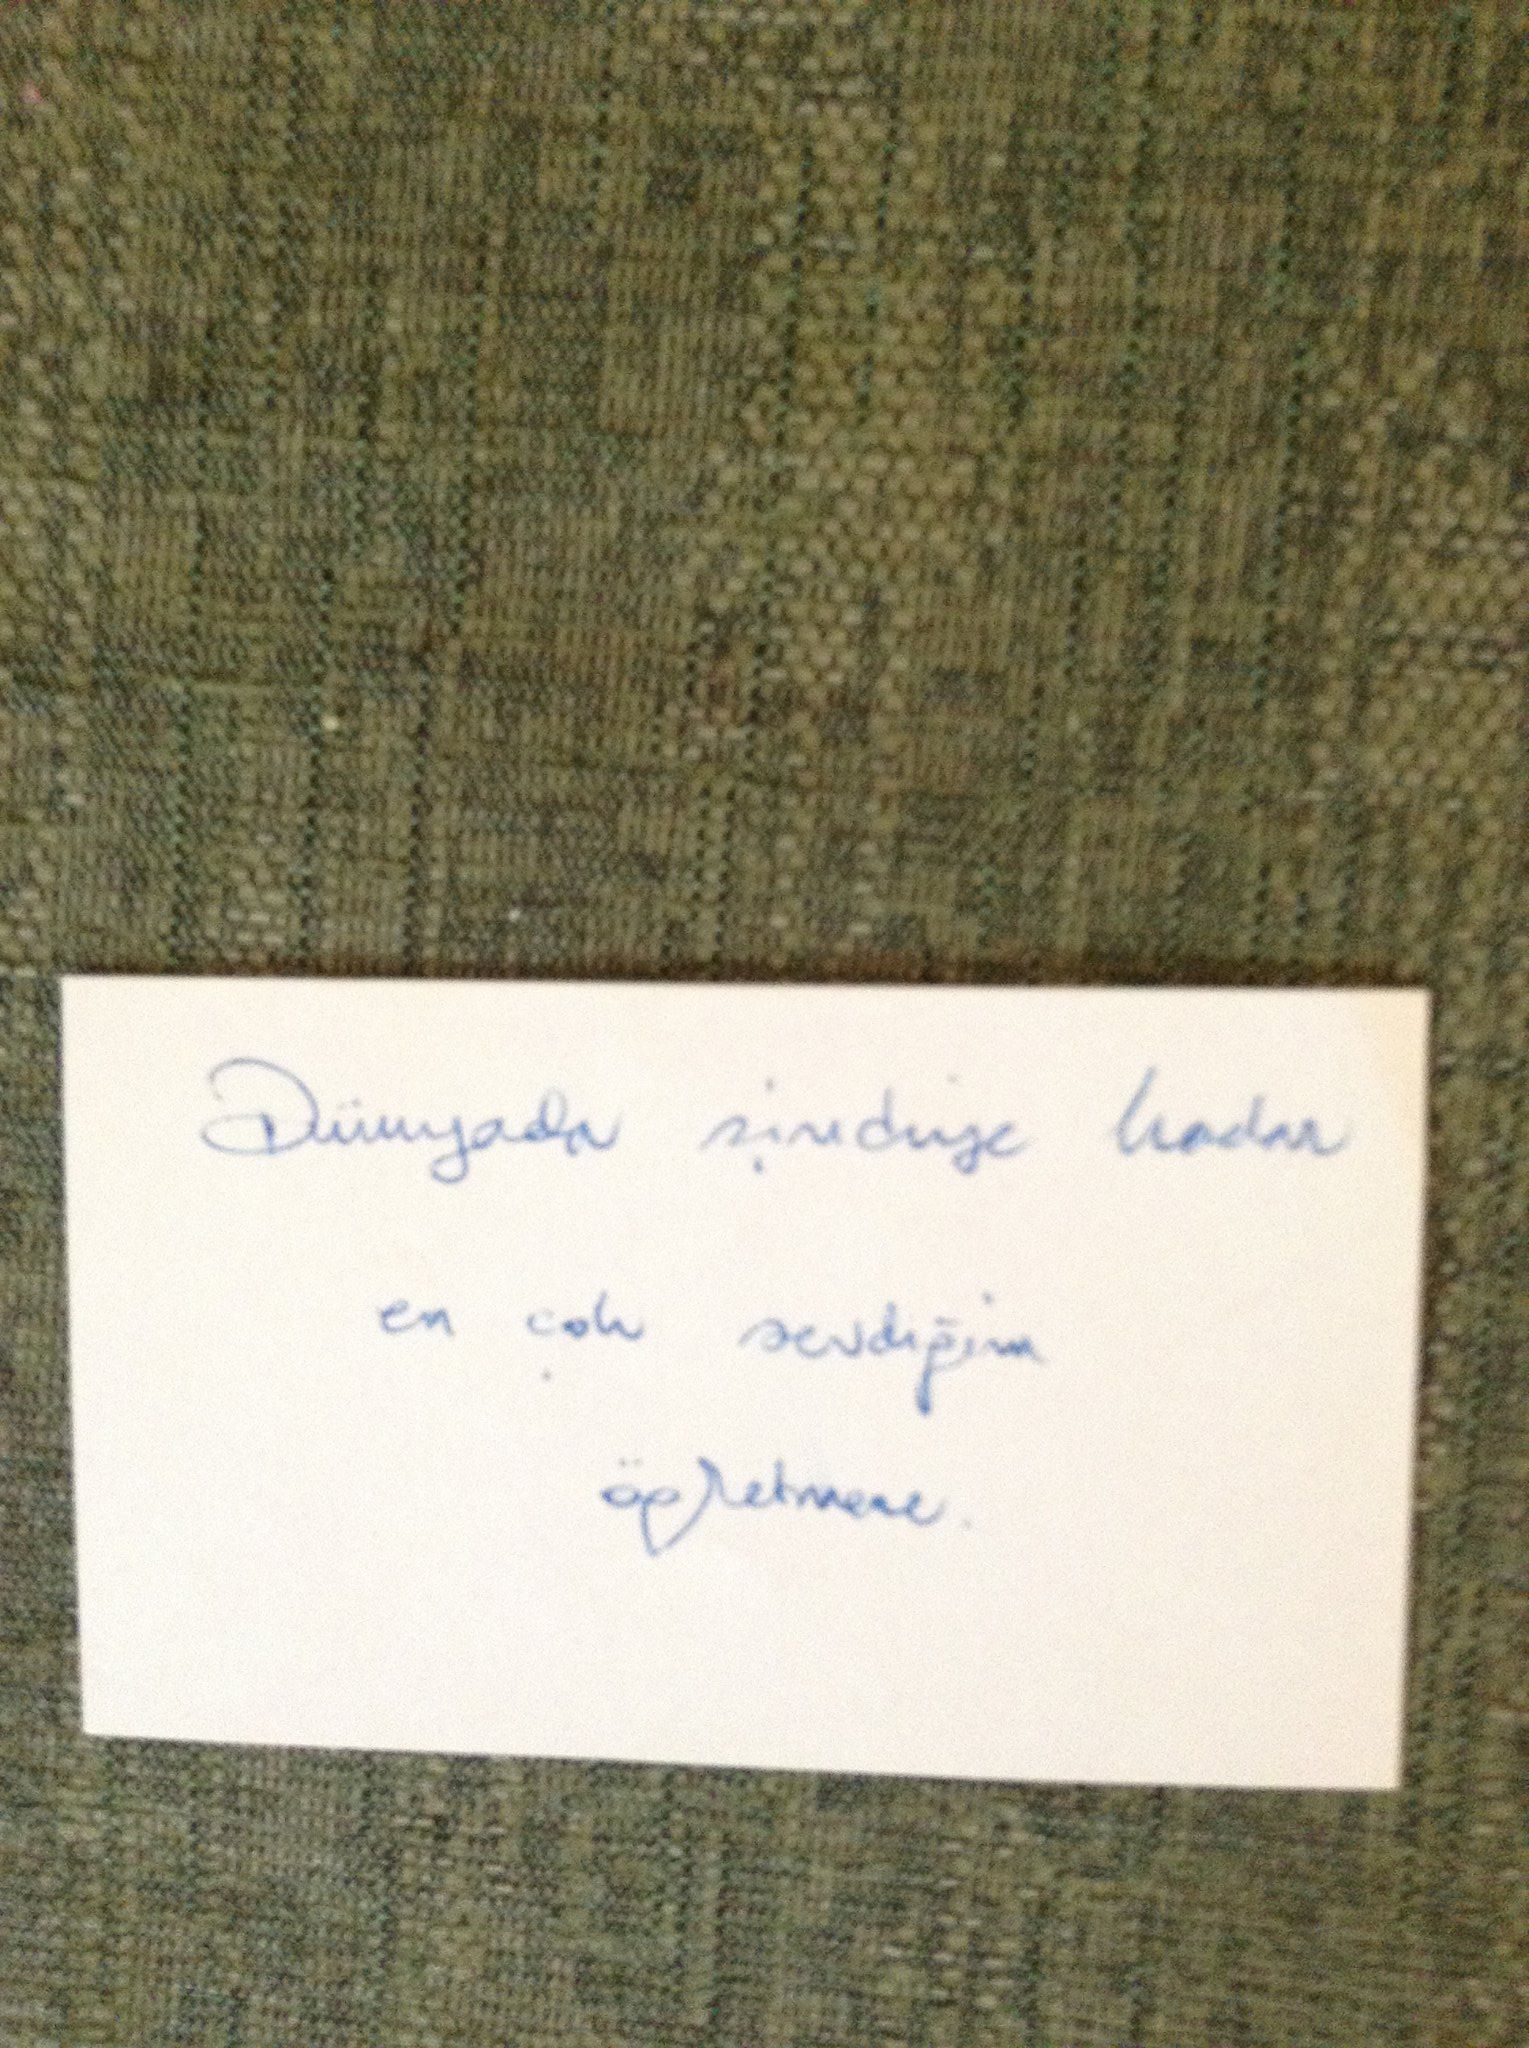 Dünyada şimdiye kadar
en çok sevdiğim
öğretmene.